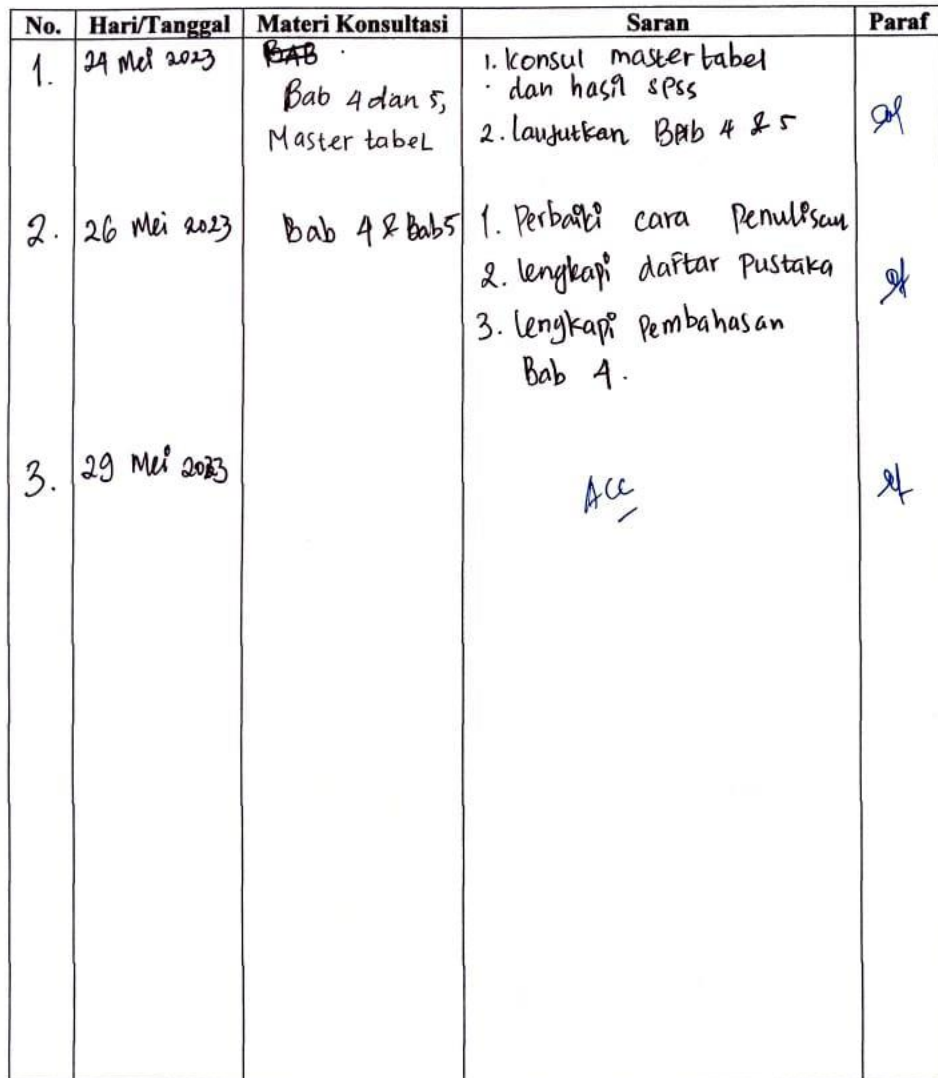 No. Hari/Tanggal Materi Konsultasi Saran Paraf
1. 24 Mei 2023 BAB 1. Konsul master tabel
Bab 4 dan 5, dan hasil SPSS
Master tabel 2. lanjutkan Bab 4 & 5
2. 26 Mei 2023 Bab 4 & Bab 5 1. Perbaiki cara Penulisan
2. lengkapi daftar Pustaka
3. lengkapi Pembahasan
Bab 4.
3. 29 Mei 2023 ACC